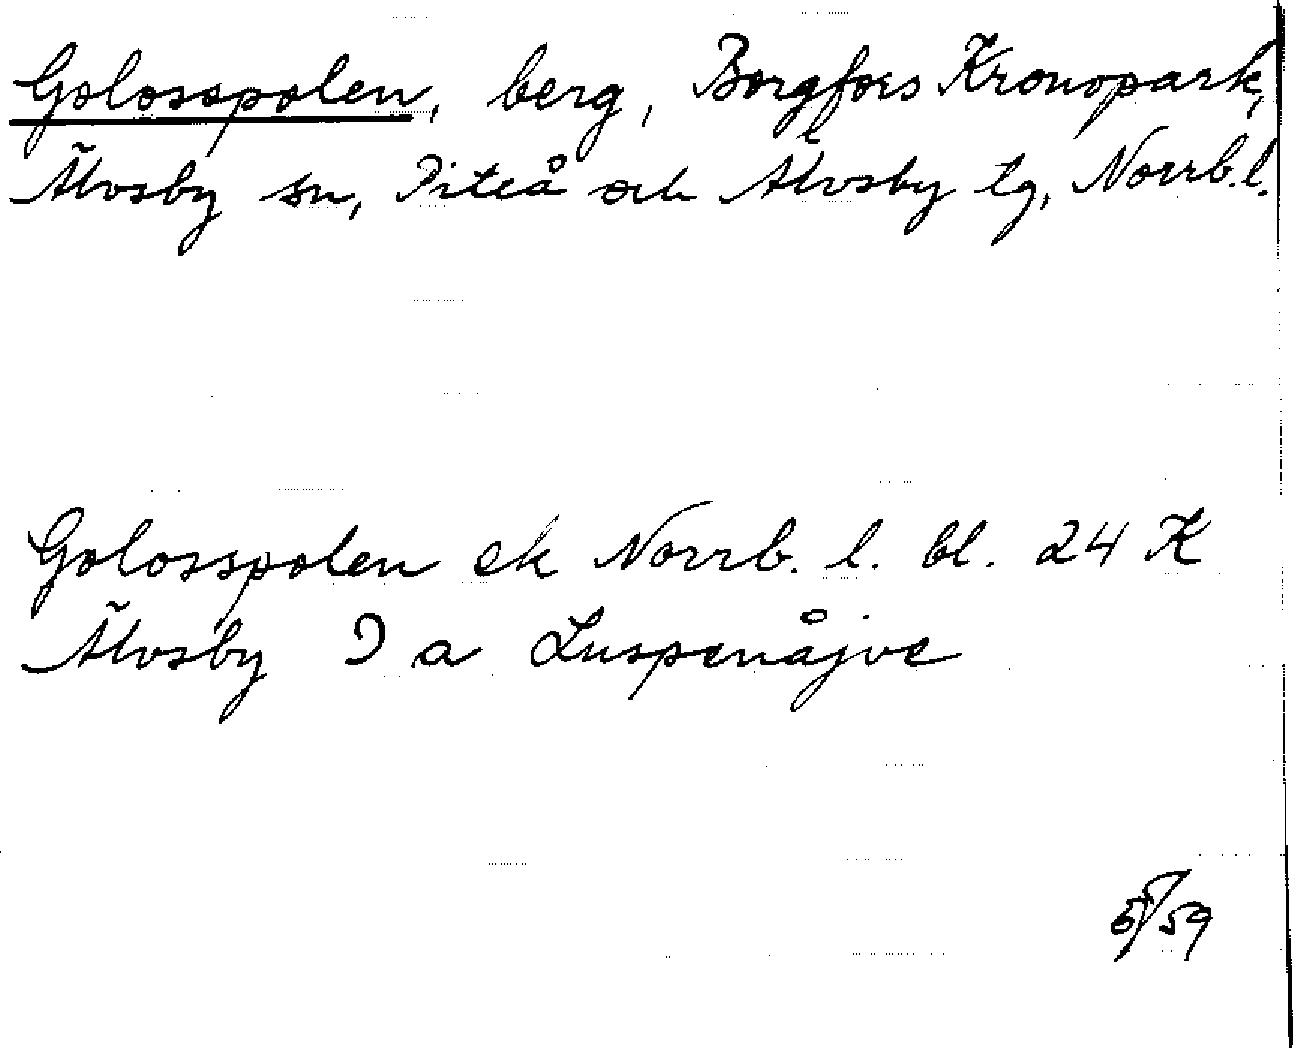 Golosspolen, berg, Borgfors Kronopark,
Älvsby sn, Piteå och Älvsby tg, Norrb. l.
Golosspolen ek Norrb. l. bl. 24 K
Älvsby I a Luspenåjve